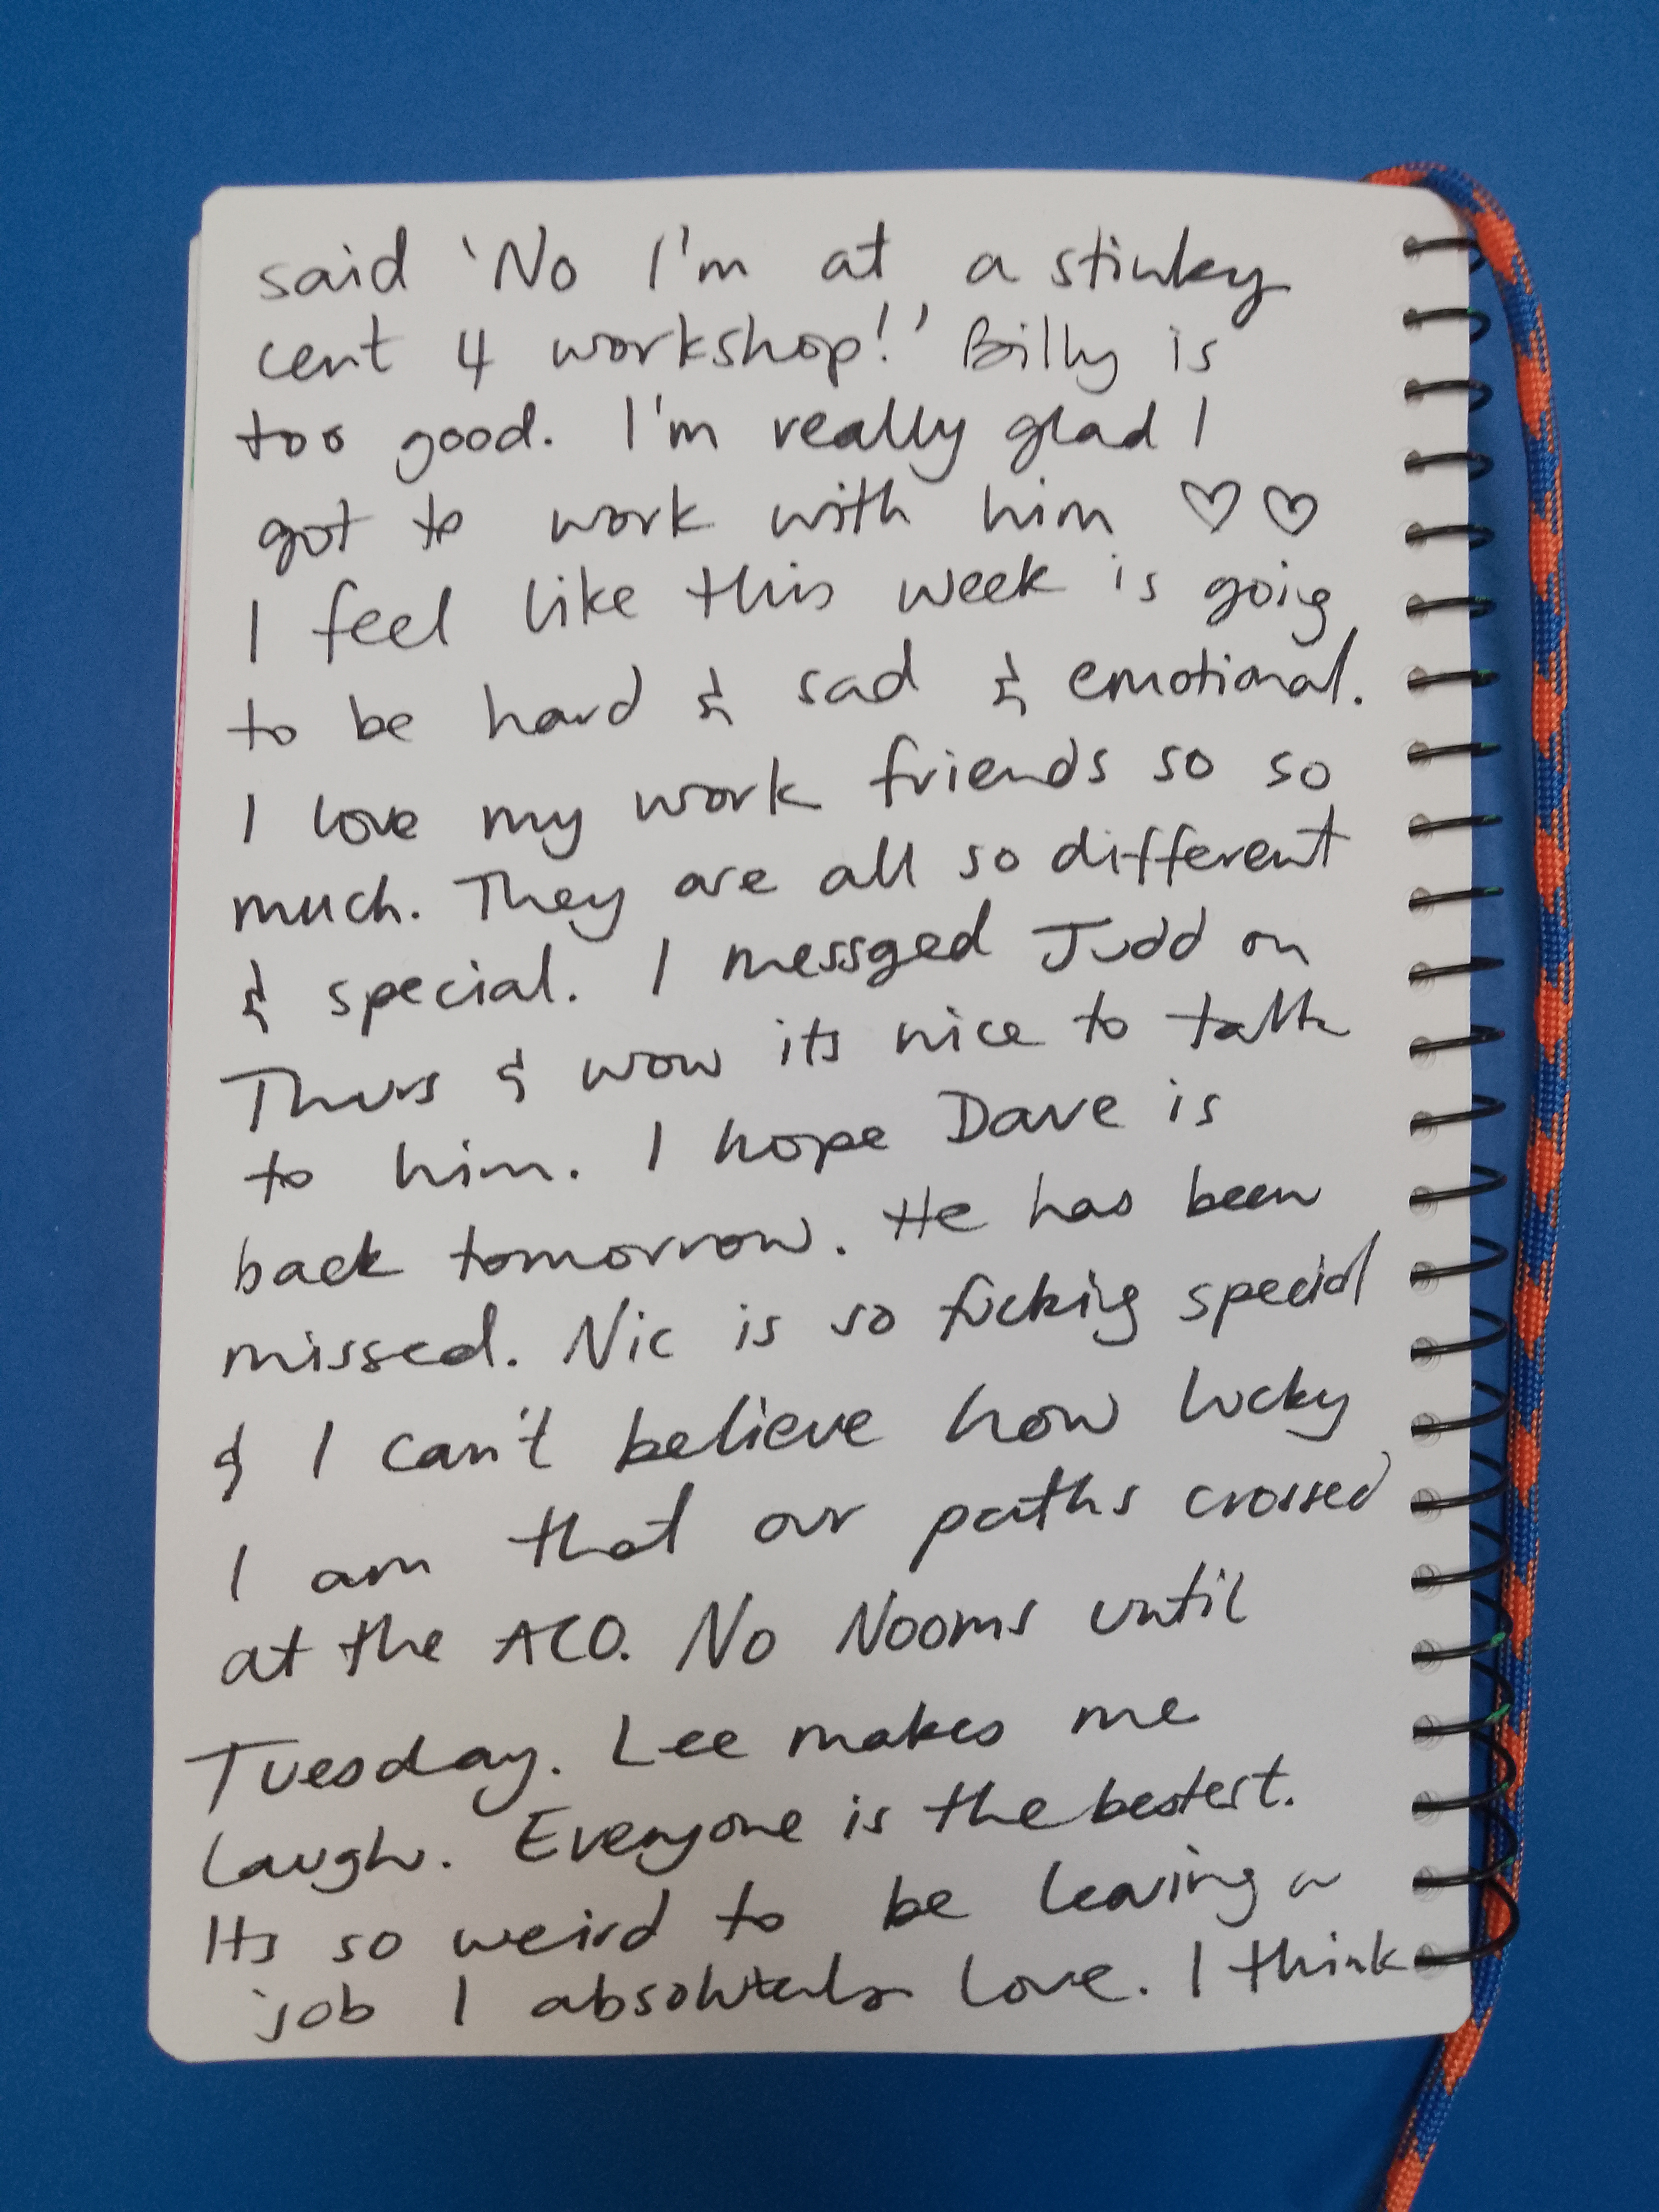 said 'No I'm at a stinky
cert 4 workshop!' Billy is
too good. I'm really glad I
got to work with him ♡♡
I feel like this week is goig
to be hard & sad & emotional.
I love my work friends so so
much. They are all so different
& special. I messged Judd on
Thurs & wow its nice to talk
to him. I hope Dave is
back tomorrow. He has been
missed. Nic is so fucking special
& I can't believe how lucky
I am that our paths crossed
at the ACO. No Nooms until
Tuesday. Lee makes me
laugh. Everyone is the bestest.
Its so weird to be leaving a
job I absolutely love. I think